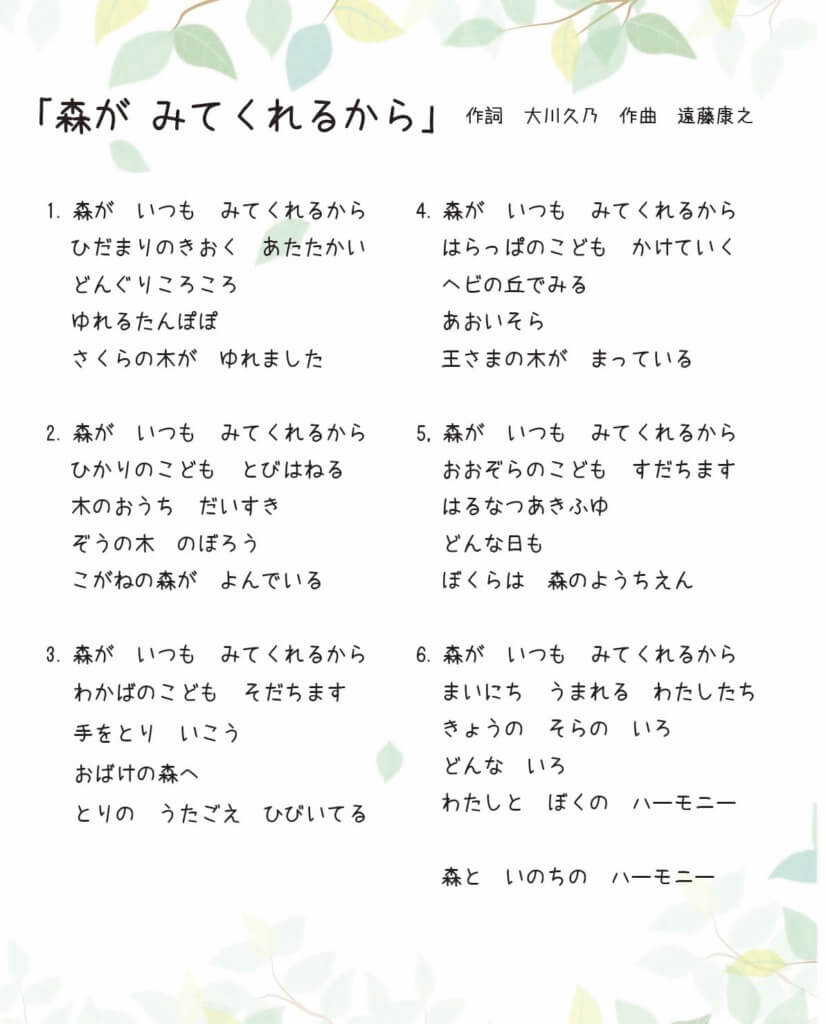 「森が みてくれるから」 作詞 大川久乃 作曲 遠藤康之
1. 森が いつも みてくれるから
ひだまりのきおく あたたかい
どんぐりころころ
ゆれるたんぽぽ
さくらの木が ゆれました
2. 森が いつも みてくれるから
ひかりのこども とびはねる
木のおうち だいすき
ぞうの木 のぼろう
こがねの森が よんでいる
3. 森が いつも みてくれるから
わかばのこども そだちます
手をとり いこう
おばけの森へ
とりの うたごえ ひびいてる
4. 森が いつも みてくれるから
はらっぱのこども かけていく
ヘビの丘でみる
あおいそら
王さまの木が まっている
5, 森が いつも みてくれるから
おおぞらのこども すだちます
はるなつあきふゆ
どんな日も
ぼくらは 森のようちえん
6. 森が いつも みてくれるから
まいにち うまれる わたしたち
きょうの そらの いろ
どんな いろ
わたしと ぼくの ハーモニー
森と いのちの ハーモニー